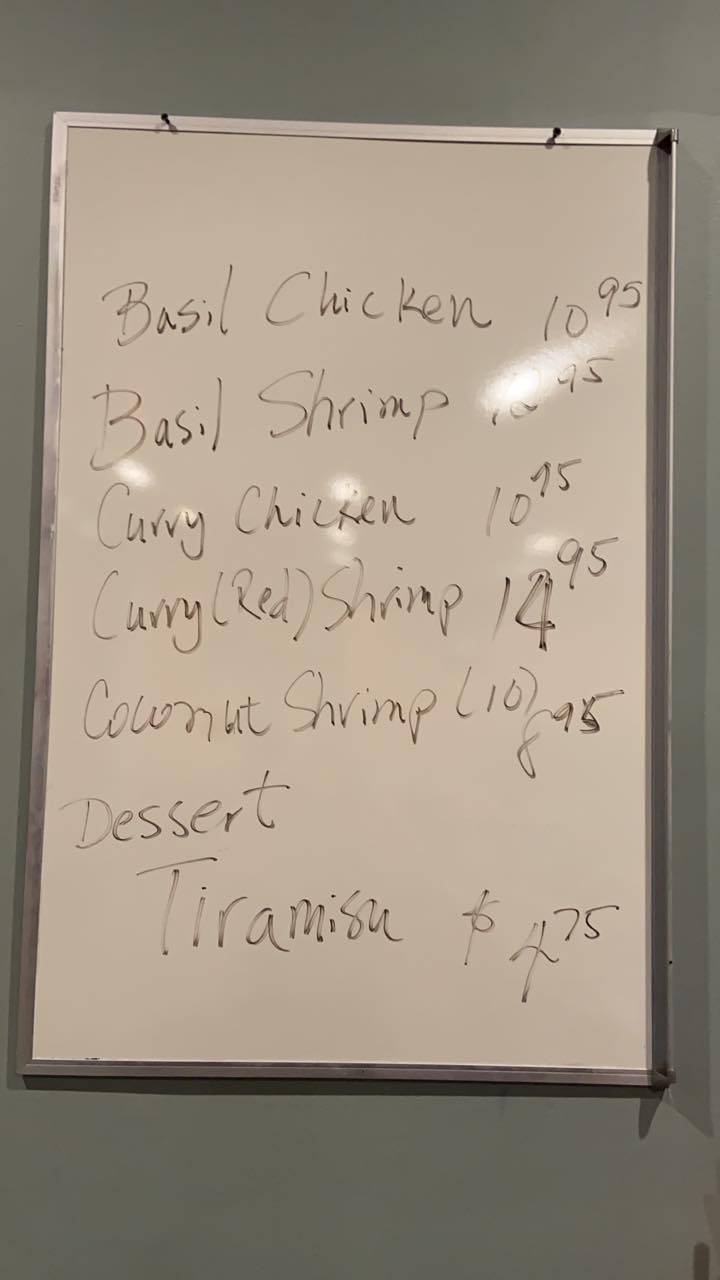 Basil Chicken 10 95
Basil Shrimp 95
Curry Chicken 10 95
Curry (Red) Shrimp 95
Coconut Shrimp (10) 8 95
Dessert
Tiramisu $ 4 75